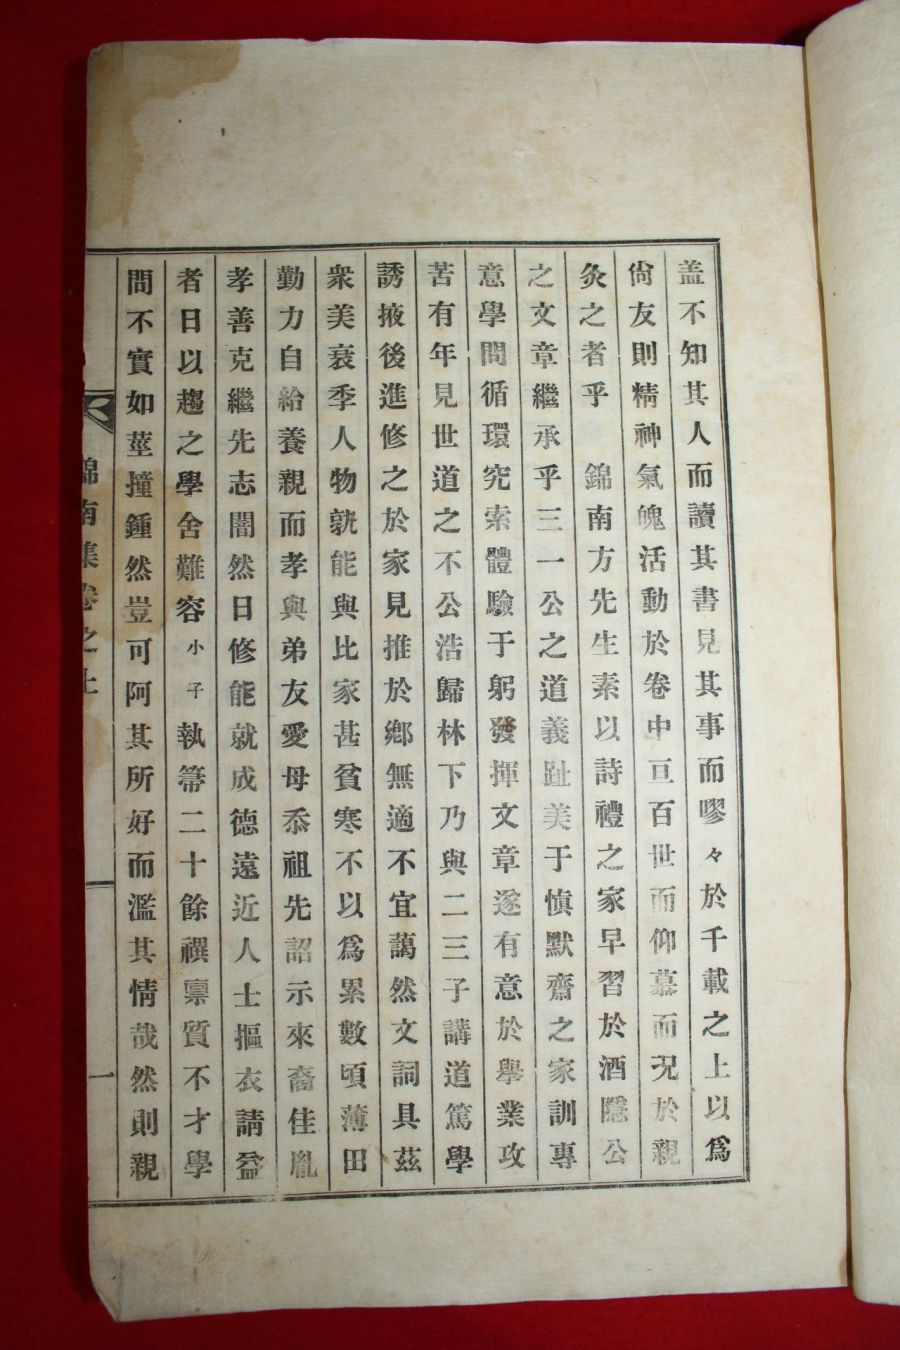 盖不知其人而讀其書見其事而嘐々於千載之上以爲
尙友則精神氣魄活動於卷中亘百世而仰慕而况於親
灸之者乎 錦南方先生素以詩禮之家早習於酒隱公
之文章繼承乎三一公之道義趾美于愼默齋之家訓專
意學問循環究索體驗于躬發揮文章遂有意於擧業攻
苦有年見世道之不公浩歸林下乃與二三子講道篤學
誘掖後進修之於家見推於鄕無適不宜藹然文詞具茲
衆美衰季人物孰能與比家甚貧寒不以爲累數頃薄田
勤力自給養親而孝與弟友愛母忝祖先詔示來裔佳胤
孝善克繼先志闇然日修能就成德遠近人士摳衣請益
者日以趨之學舍難容小子執箒二十餘禩禀質不才學
問不實如莖撞鍾然豈可阿其所好而濫其情哉然則親
錦南集卷之上
一